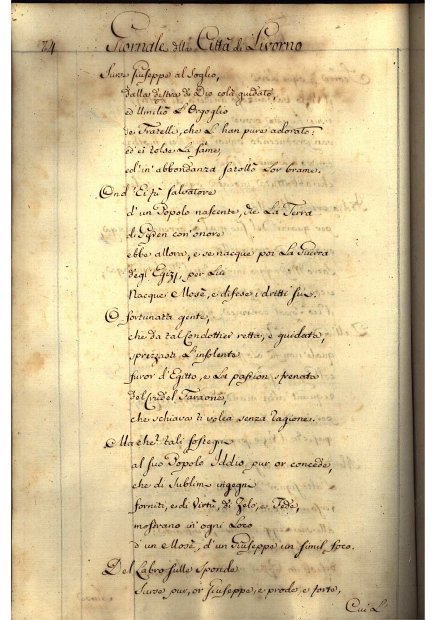 24 Giornale della Città di Livorno
Surse Giuseppe al Soglio,
dalla destra di Dio colà guidato,
ed Umiliò L'Orgoglio
de Fratelli, che L'han pure adorato:
ed ei tolse La fame,
ed'in'abbondanza satollò Lor brame.
Ond'Ei fù Salvatore
d'un Popolo nascente, che La Terra
di Gessen con'onore
ebbe allora, e se nacque poi La Guerra
degl'Egizj, per Lui
Nacque Mosè, e difese i dritti sui.
O fortunata gente,
che da tal Condottier retta, e guidata,
sprezzasti L'insolente
furor d'Egitto, e La passion sfrenata
del Crudel Faraone,
che schiava ti volea senza ragione.
Ma che? tali sostegni
al suo Popolo Iddio pur or concede,
che di Sublimi ingegni
forniti, e di Virtù, di Zelo, e Fede,
mostrano in'ogni Loco
d'un Mosè, d'un Giuseppe un simil foco.
Del Labro sulle Sponde
Surse pur, or Giuseppe, e prode, e forte,
Cui L'